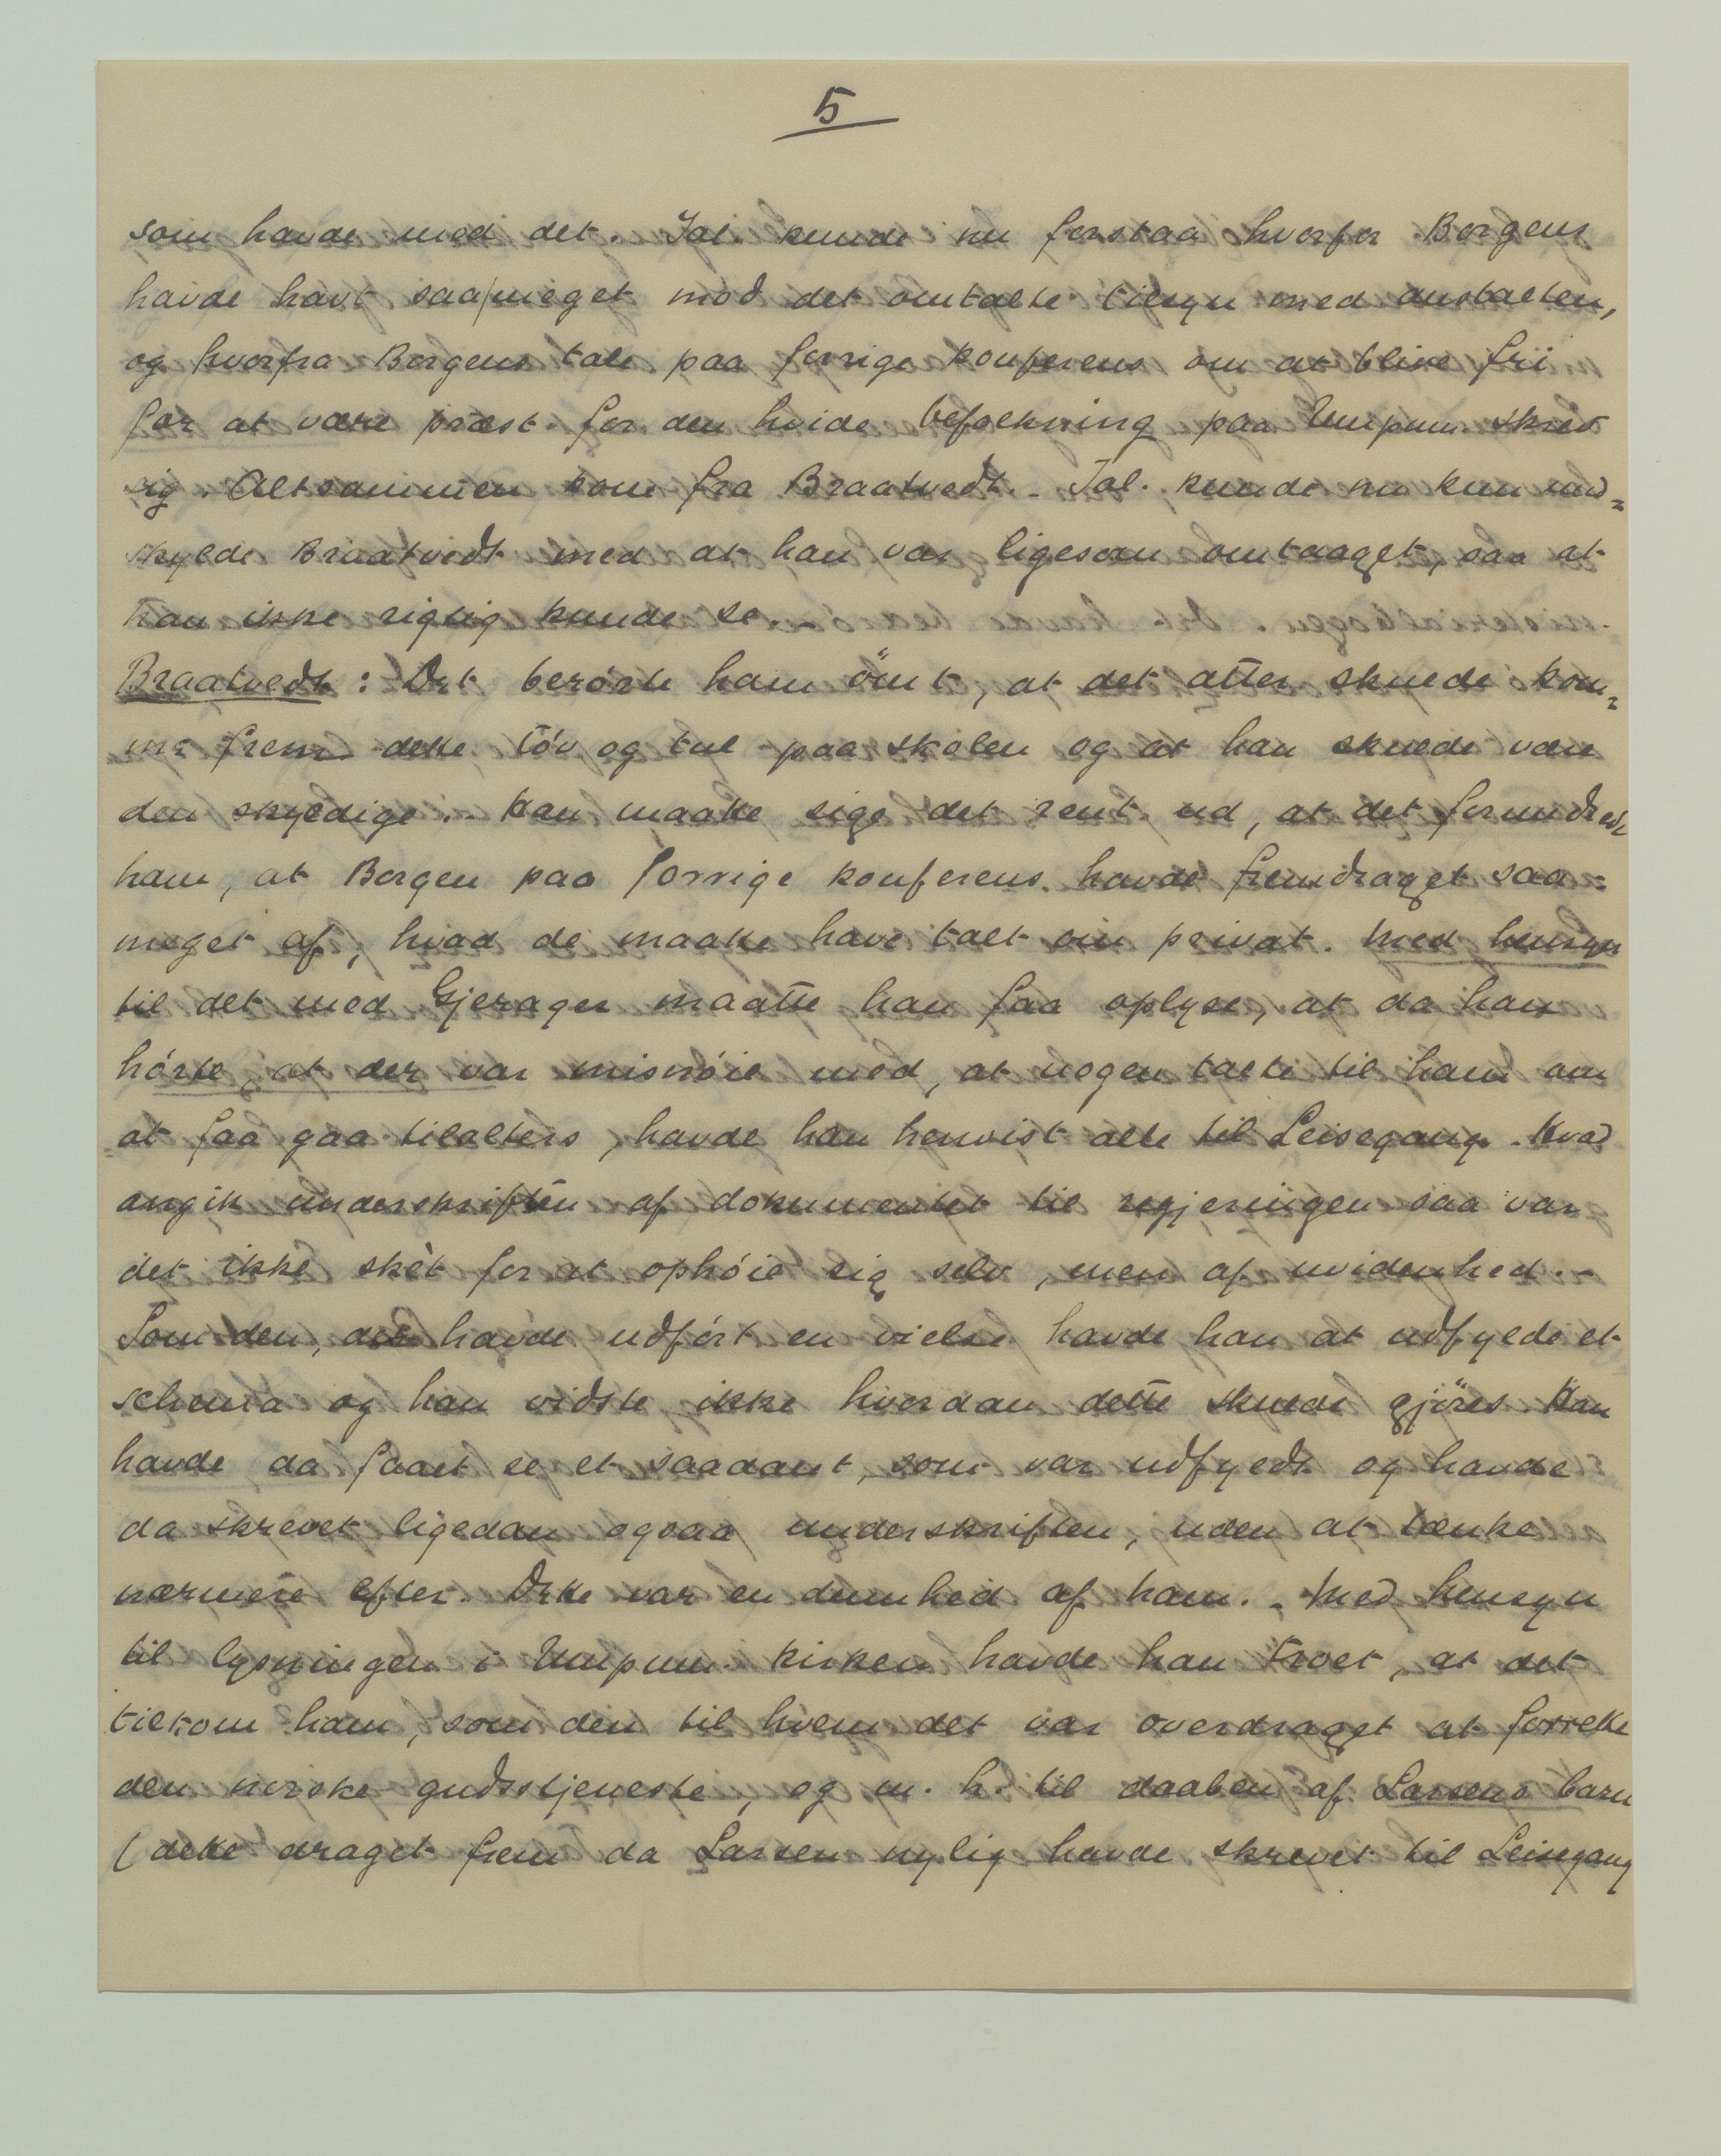 5
som havde med det. Tal. kunde nu forstaa hvorfor Borgens
havde havt saa/meget mod det omtalte tilsyn med anstalten,
og hvorfra Borgens tale paa forrige konferens om at blive fri
for at være præst for den hvide befolkning paa Umpum. skrev
sig. Altsammen kom fra Braatvedt. - Tal. kunde nu kun und=
skylde Braatvedt med at han var ligesom omtaaget, saa at
han ikke rigtig kunde se. -
Braatvedt: Det berørte ham ömt, at det atter skulde kom=
me frem dette tøv og tul paa skolen og at han skulde være
den skyldige. - Han maatte sige det rent ud, at det forundrede
ham, at Borgen paa forrige konferens havde fremdraget saa-
meget af, hvad de maatte have talt om privat. Med hensyn
til det med Gjerager maatte han faa oplyse, at da han
hørte, at der var misnøie med, at nogen talte til ham om
at faa gaa tilalters, havde han henvist alle til Leisegang. Hvad
angik underskriften af dokumentet til regjeringen saa var
det ikke skèt for at ophøie sig selv, men af uvidenhed. -
Som den, der havde udført en vielse havde han at udfylde et
schema og han vidste ikke hvordan dette skulde gjöres. Han
havde da faaet se et saadant, som var udfyldt og havde
da skrevet ligedan ogsaa underskriften, uden at tænke
nærmere efter. Dette var en dumhed af ham. - Med hensyn
til lysningen i Umpum. kirken havde han troet, at det
tilkom ham, som den til hvem det var overdraget at forrette
den norske gudstjeneste, og m. h. til daaben af Larsens barn
(dette draget frem da Larsen nylig havde skrevet til Leisegang